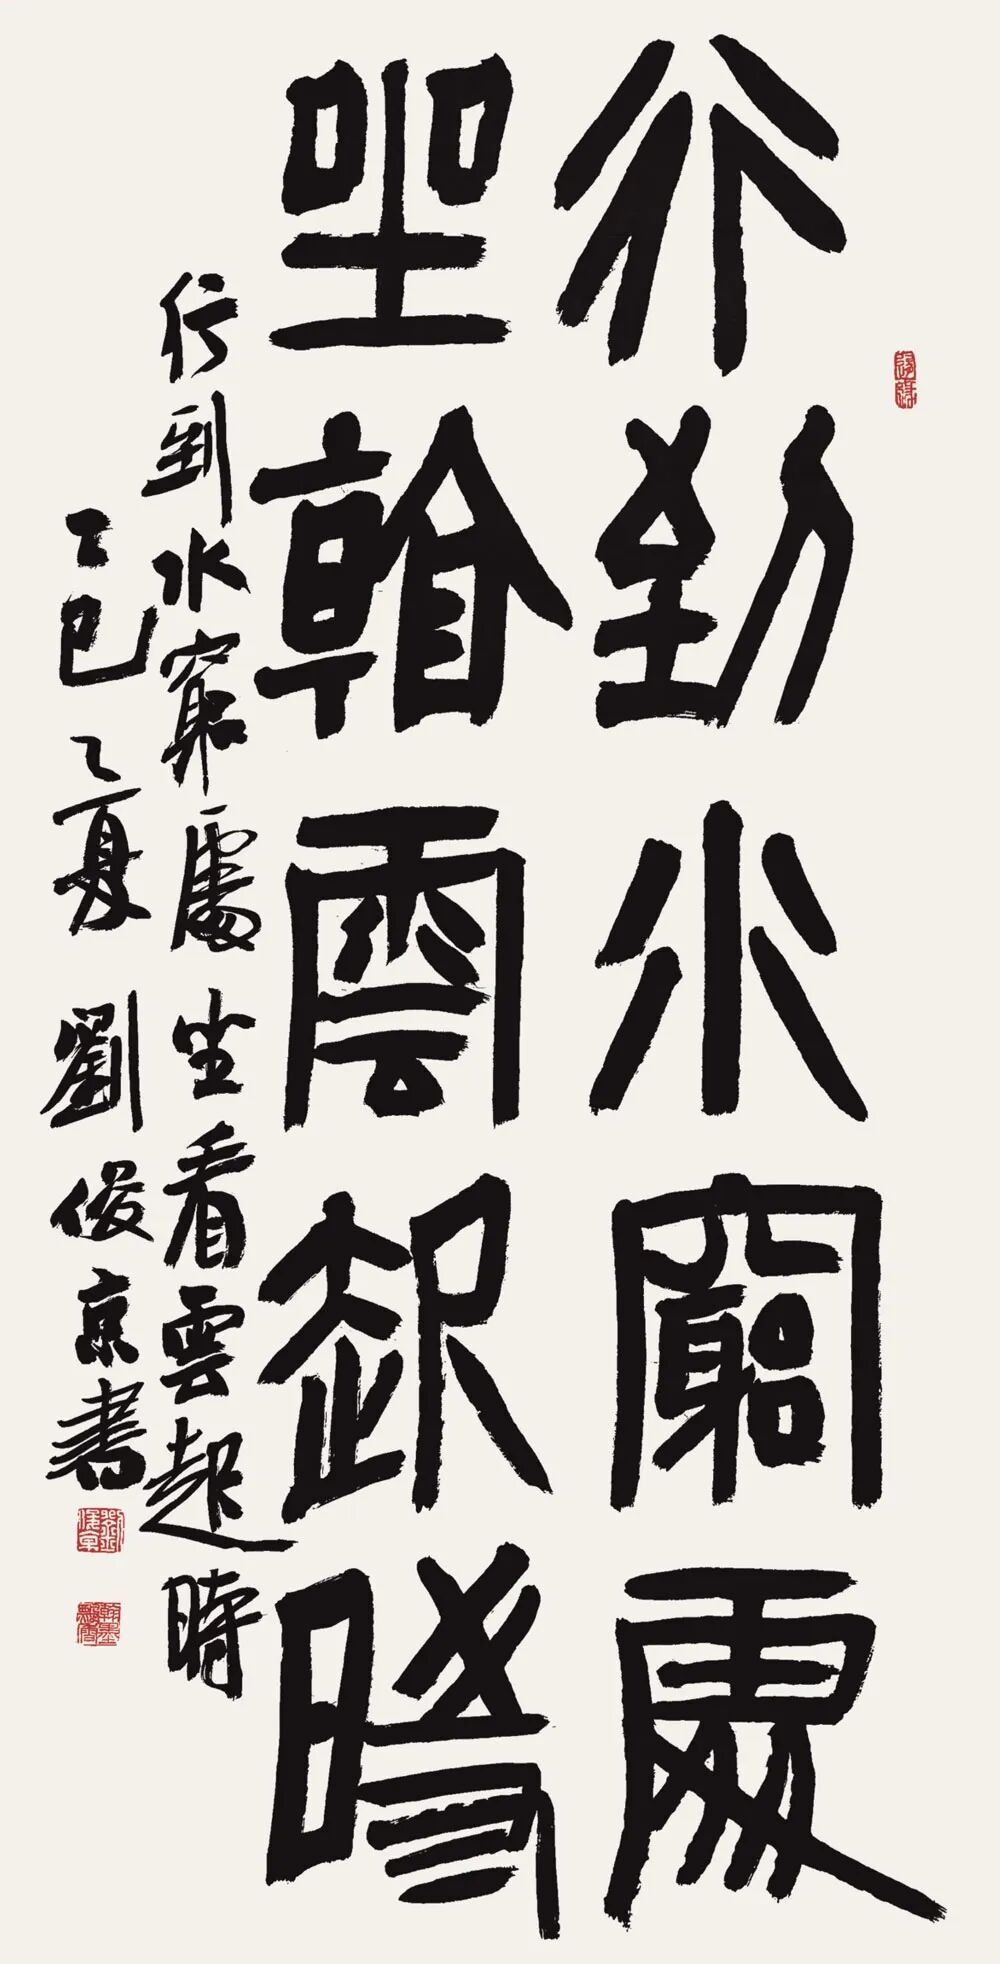 行到水窮處
坐看雲起時
行到水窮處坐看雲起時
乙巳之夏劉俊京書
劉俊京